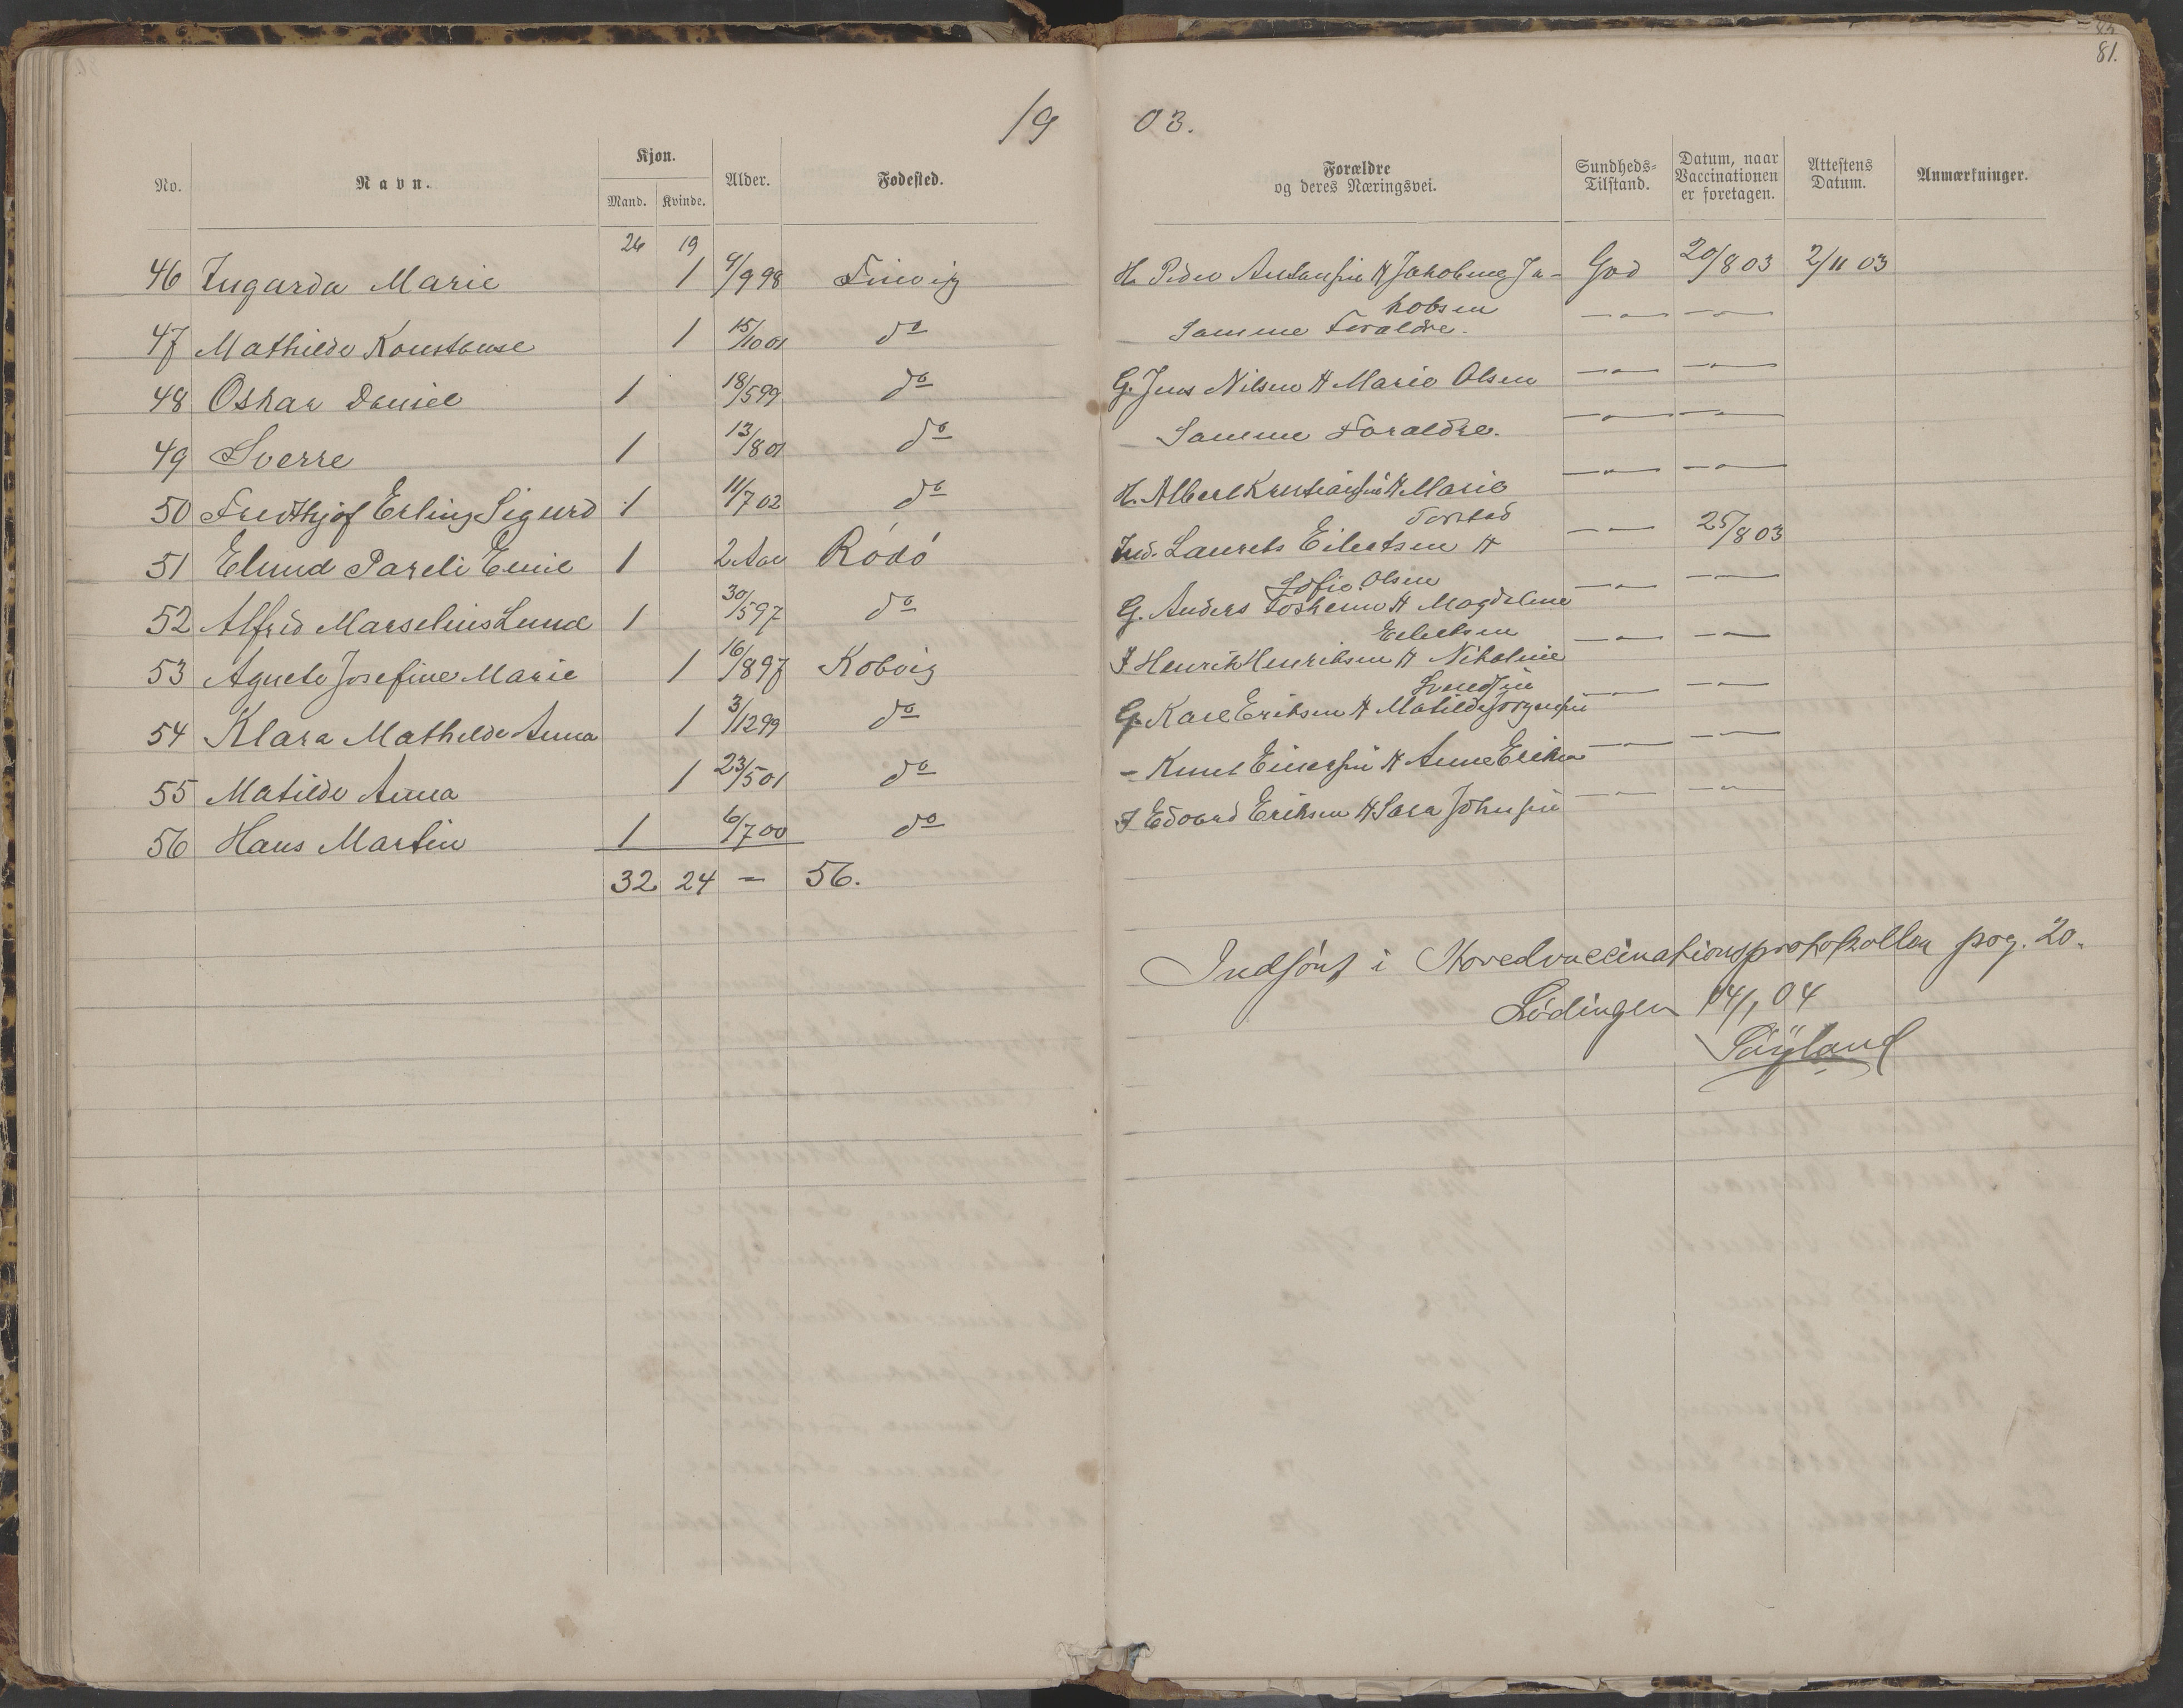 81.
19 03.
No. Navn. Kjøn. Mand. Kvinde. Alder. Fødested. Forældre og deres Næringsvei. Sundheds-Tilstand. Datum, naar Vaccinationen er foretagen. Attestens Datum. Anmærkninger.
26 19
46 Ingarda Marie 1 4/9 98 Finvig H. Peder Antonsen & Jakobine Ja- God 20/8 03 2/11 03
kobsen
47 Mathilde Konstanse 1 15/10 01 do Samme Foraldre. — " — — " —
48 Oskar Daniel 1 18/5 99 do G. Jens Nilsen & Marie Olsen — " — — " —
49 Sverre 1 13/8 01 do Samme Foraldre. — " — — " —
50 Fredthjof Erling Sigurd 1 11/7 02 do H. Albert Kristiansen & Marie — " — — " —
51 Elmud Pareli Emil 1 2 Aar Rödö Ind. Laurits Eilertsen & — " — 25/8 03
Sofie Olsen
52 Alfred Marselius Lund 1 30/5 97 do G. Anders & Magdalene — " — — " —
Eilertsen
53 Agnete Josefine Marie 1 16/8 97 Kobvig I Henrik Henriksen & Nikoline — " — — " —
54 Klara Mathilde Anna 1 3/12 99 do G. Karl Eriksen & Matilde Jörgensen — " — — " —
55 Matilde Anna 1 23/5 01 do - Knut Einersen & Anne — " — — " —
56 Hans Martin 1 6/7 00 do I Edvard Eriksen & Sara Johnsen — " — — " —
32 24 — 56.
Indført i Hovedvaccinationsprotokollen pag. 20.
Lødingen 14/1 04